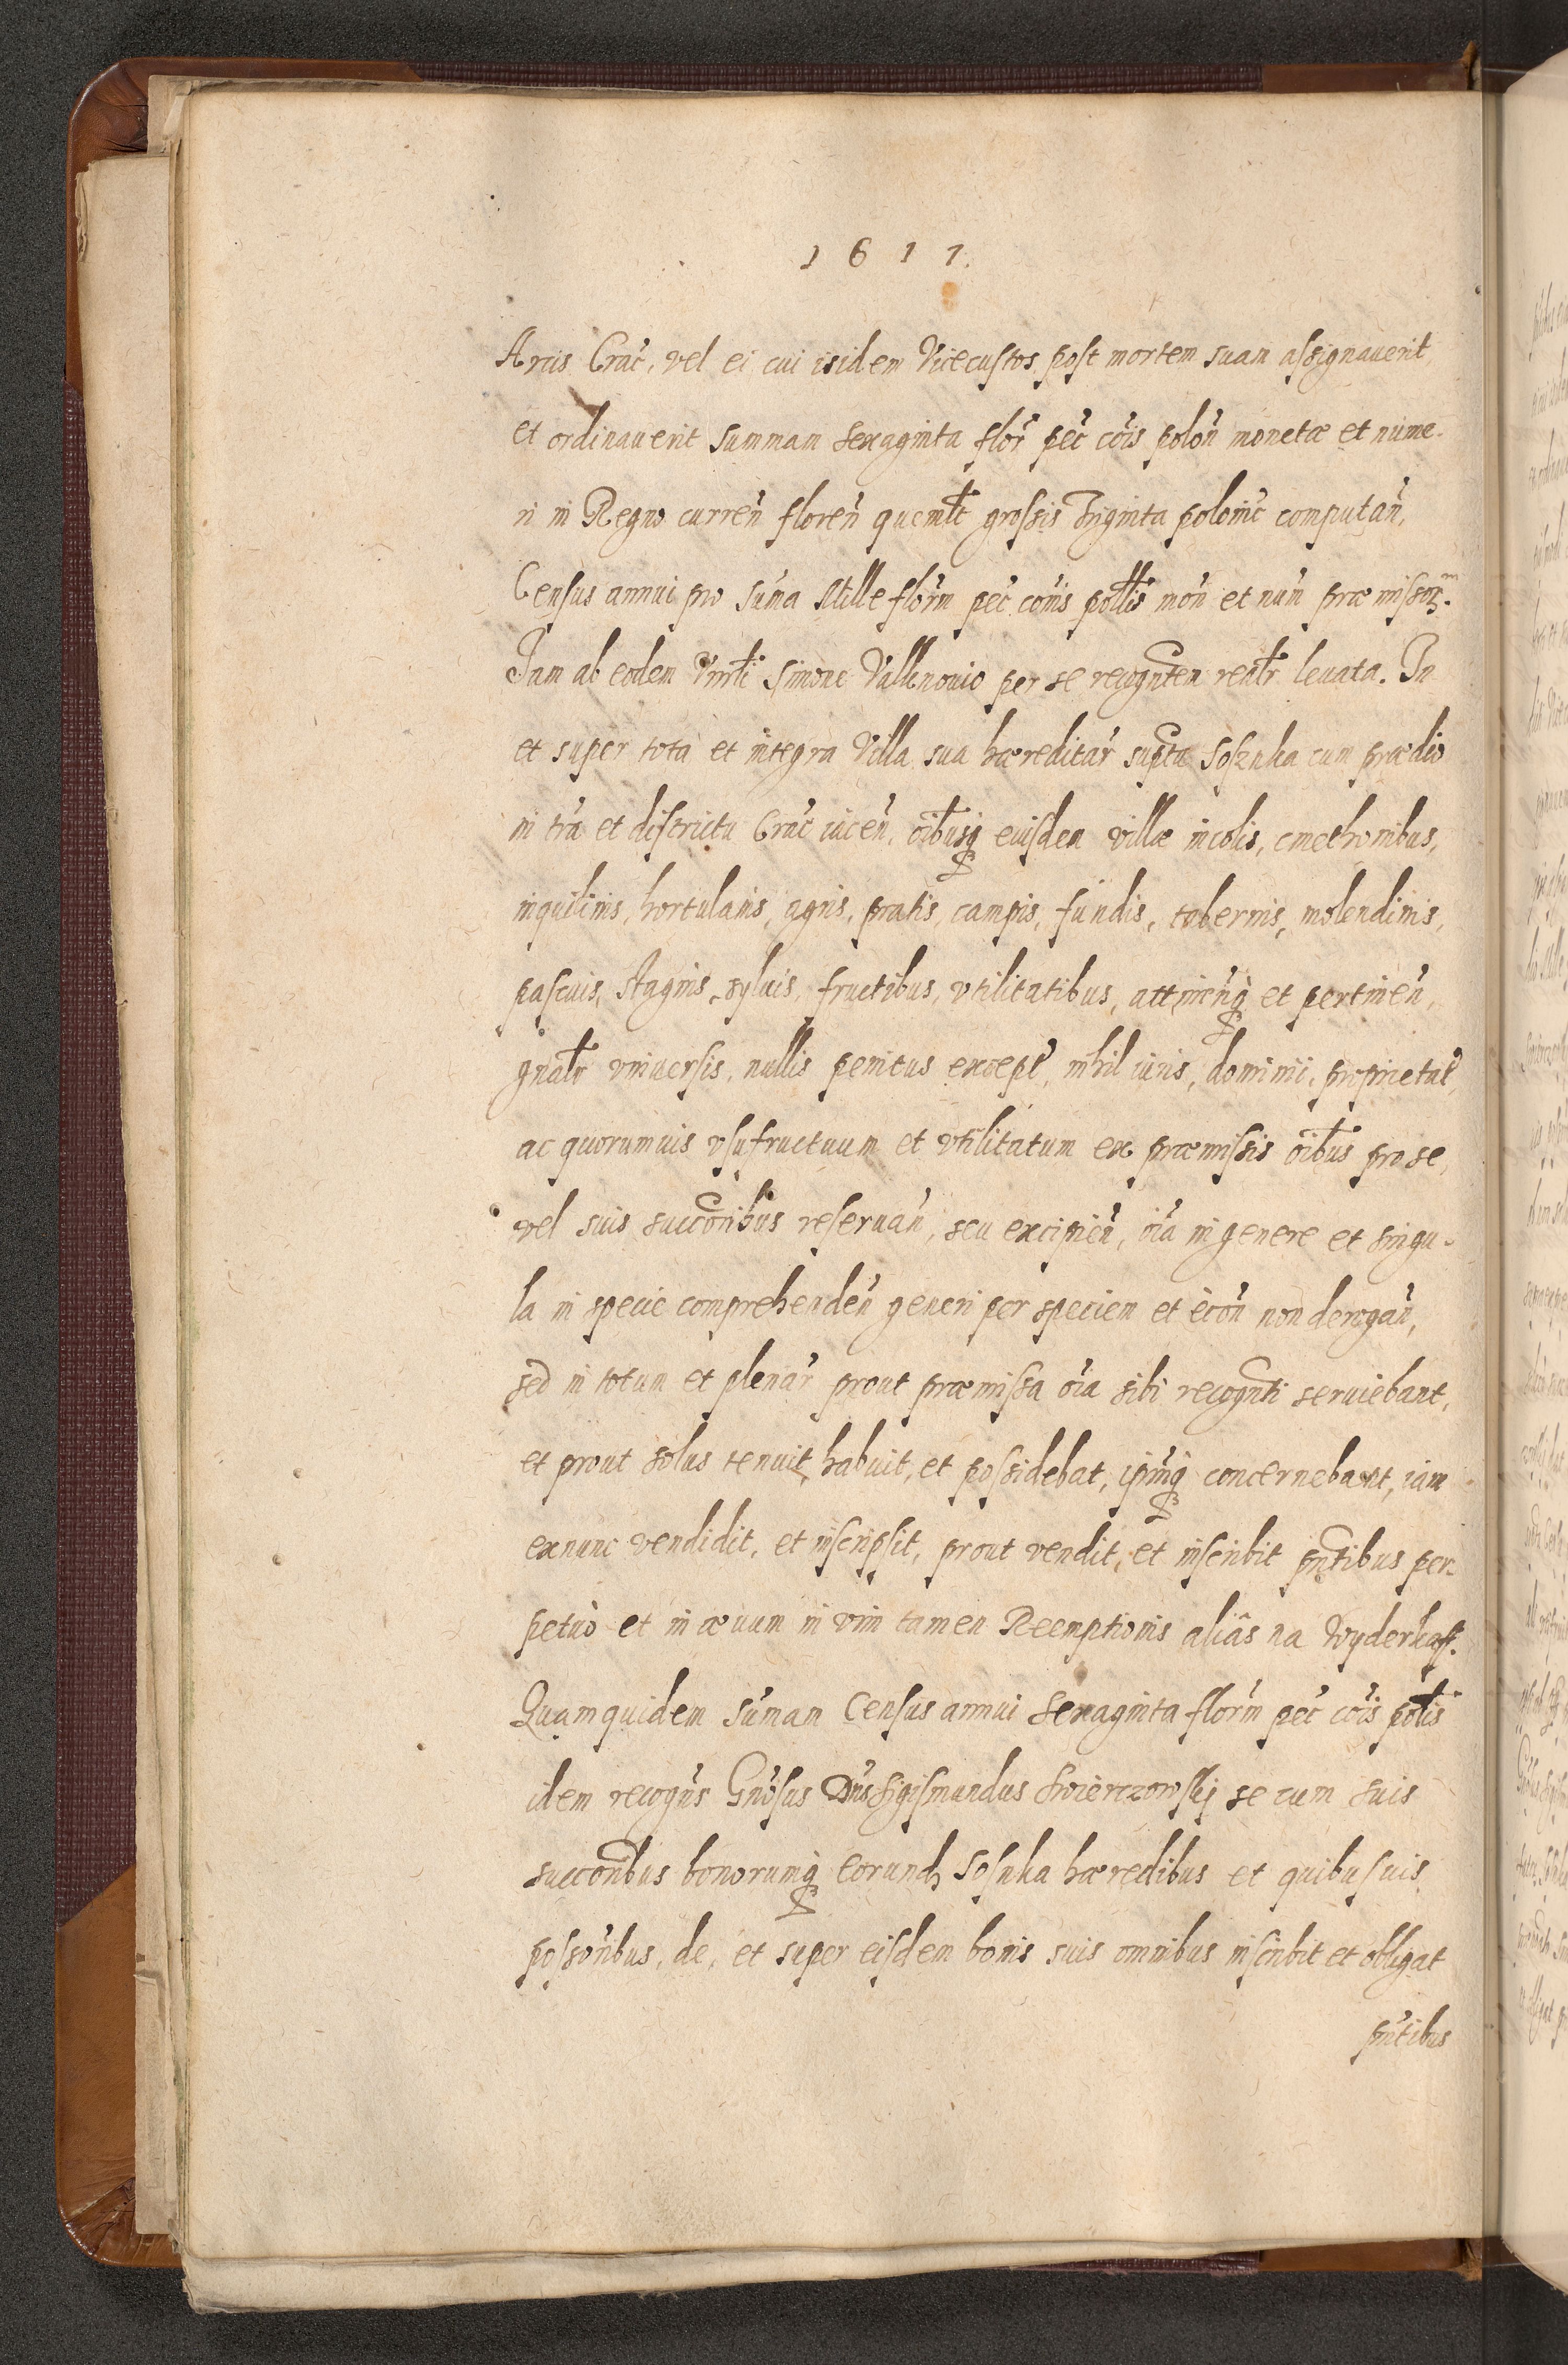 1617.
Arcis Crac̃, vel ei cui isidem Vicecustos post mortem suam assignauerit
et ordinauerit summam sexaginta flor̃ pec̃ cõis polon̄ monetæ et nume-
ri in Regno curren̄ floren̄ quemlt̃ grossis Triginta polonic̃ computan̄,
Census annui pro sum̃a Mille flor̃m pec̃ com̃is pollis̃ mon̄ et num̄ præmissor̃.
Jam ab eodem Vnrli Simone Vallknouio per se recognt̃em realr̃ leuata. In
et super tota et integra Villa sua hæreditar̃ supt̃a Sosznka cum prædio
in tr̃a et districtu Crac̃ iacen̄, oĩbusq̃ eiusdem villæ incolis, cmethonibus,
inquilinis, hortulanis, agris, pratis, campis, fundis, tabernis, molendinis,
pascuis, stagnis, syluis, fructibus, vtilitatibus, attinen̄q̃ et pertinen̄,
gnalr̃ vniuersis, nullis penitus except̃, nihil iuris, dominii, proprietat̃,
ac quorumuis vsufructuum et vtilitatum ex præmissis oĩbus pro se,
vel suis succõnibus reseruan̄, seu excipien̄, oĩa in genere et singu-
la in specie comprehenden̄ generi per speciem et ècon̄ non derogan̄,
sed in totum et plenar̃ prout præmissa oĩa sibi recognt̃i seruiebant,
et prout solus tenuit, habuit, et possidebat, ipm̃q̃ concernebant, iam
exnunc vendidit, et inscripsit, prout vendit, et inscribit pñtibus per-
petuò et in æuum in vim tamen Reemptionis aliâs na Wyderkaff.
Quamquidem sum̃am Census annui sexaginta flor̃m pec̃ cõis polis̃
idem recogñs Gnõsus Dñs Sigismundus Swierczowskj se cum suis
succõnibus bonorumq̃ eorund, Sosnka hæredibus et quibusuis
possõnibus, de, et super eisdem bonis suis omnibus inscribit et obligat
pñtibus